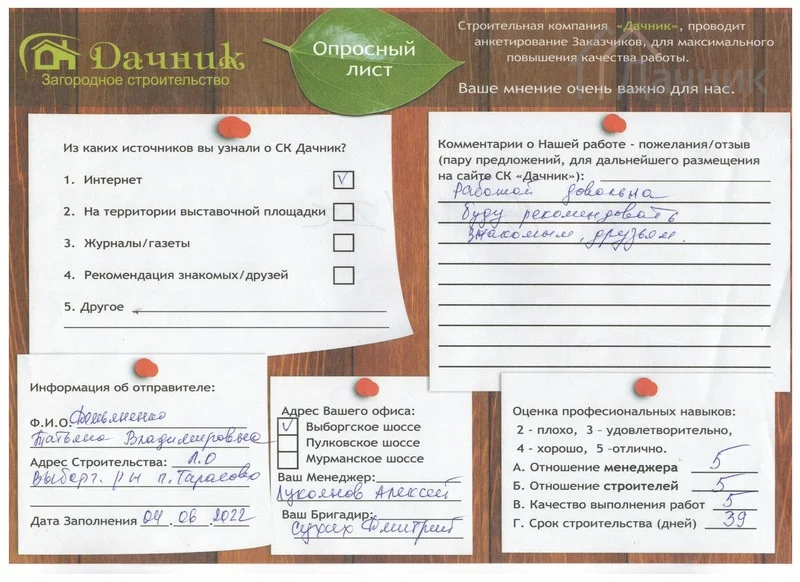 Дачник
Загородное строительство
Опросный
лист
Строительная компания «Дачник», проводит
анкетирование Заказчиков, для максимального
повышения качества работы.
Ваше мнение очень важно для нас.
Дачник
Из каких источников вы узнали о СК Дачник?
1. Интернет V
2. На территории выставочной площадки
3. Журналы/газеты
4. Рекомендация знакомых/друзей
5. Другое
Комментарии о Нашей работе - пожелания/отзыв
(пару предложений, для дальнейшего размещения
на сайте СК «Дачник»):
Работой довольна
буду рекомендовать
знакомым, друзьям.
Информация об отправителе:
Ф.И.О.
Татьяна Владимировна
Адрес Строительства: Л.О
Выборг. р-н п. Тарасово
Дата Заполнения 04.06.2022
Адрес Вашего офиса:
V Выборгское шоссе
Пулковское шоссе
Мурманское шоссе
Ваш Менеджер:
Лукоянов Алексей
Ваш Бригадир:
Сухих Дмитрий
Оценка професиональных навыков:
2 - плохо, 3 - удовлетворительно,
4 - хорошо, 5 -отлично.
А. Отношение менеджера 5
Б. Отношение строителей 5
В. Качество выполнения работ 5
Г. Срок строительства (дней) 39